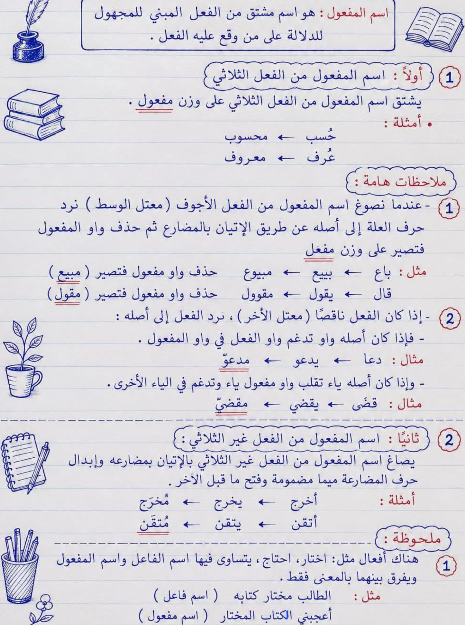 اسم المفعول : هو اسم مشتق من الفعل المبني للمجهول
للدلالة على من وقع عليه الفعل .
1 أولاً : اسم المفعول من الفعل الثلاثي
يشتق اسم المفعول من الفعل الثلاثي على وزن مفعول .
• أمثلة :
حُسب ← محسوب
عُرف ← معروف
ملاحظات هامة :
1 - عندما نصوغ اسم المفعول من الفعل الأجوف ( معتل الوسط ) نرد
حرف العلة إلى أصله عن طريق الإتيان بالمضارع ثم حذف واو المفعول
فتصير على وزن مفعل
مثل : باع ← يبيع ← مبيوع حذف واو مفعول فتصير ( مبيع )
قال ← يقول ← مقوول حذف واو مفعول فتصير ( مقول )
2 - إذا كان الفعل ناقصًا ( معتل الأخر ) ، نرد الفعل إلى أصله :
- فإذا كان أصله واو تدغم واو الفعل في واو المفعول .
مثال : دعا ← يدعو ← مدعوّ
- وإذا كان أصله ياء تقلب واو مفعول ياء وتدغم في الياء الأخرى .
مثال : قضَى ← يقضي ← مقضيّ
2 ثانيًا : اسم المفعول من الفعل غير الثلاثي :
يصاغ اسم المفعول من الفعل غير الثلاثي بالإتيان بمضارعه وإبدال
حرف المضارعة ميما مضمومة وفتح ما قبل الآخر .
أمثلة : أخرج ← يخرج ← مُخرَج
أتقن ← يتقن ← مُتقَن
ملحوظة :
1 هناك أفعال مثل : اختار ، احتاج ، يتساوى فيها اسم الفاعل واسم المفعول
ويفرق بينهما بالمعنى فقط .
مثل : الطالب مختار كتابه ( اسم فاعل )
أعجبني الكتاب المختار ( اسم مفعول )